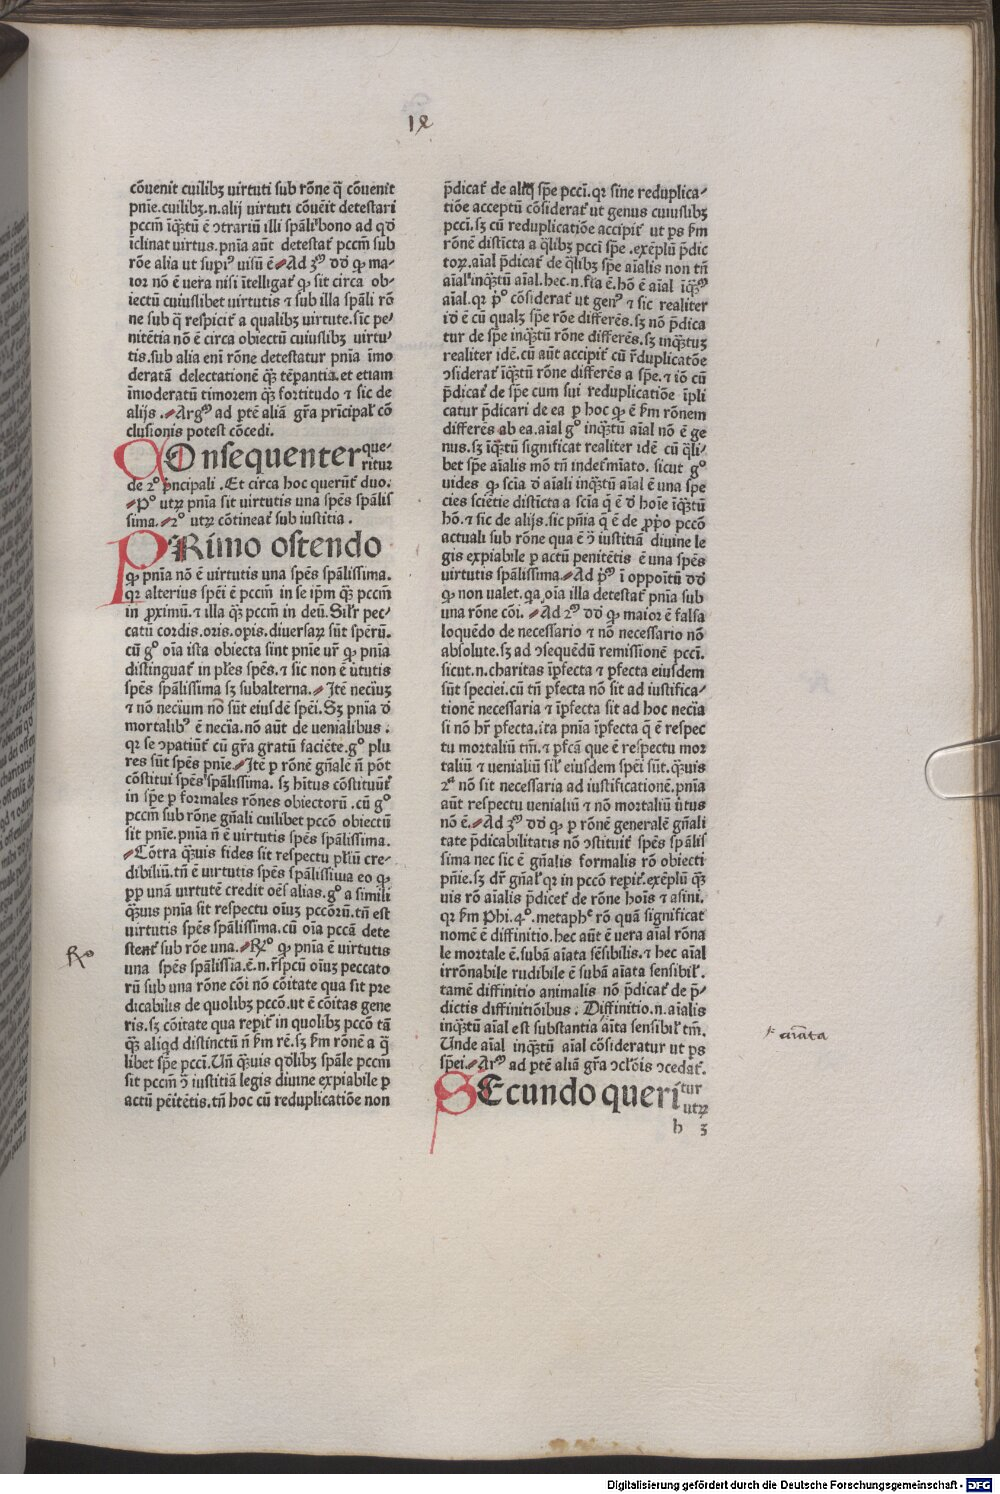 IX
cōuenit cuilibꝫ uirtuti sub rōne q̄ cōuenit
pnīe.cuilibꝫ.n.alij uirtuti cōuēit detestari
pccm īqꝫtū ē ↄtrariū illi spāli bono ad qđ
īclinat uirtus.pnīa aūt detestat̄ pccm sub
rōe alia ut supi⁹ uisū ē Ad 3ᵐ dd ꝙ ma-
ior nō ē uera nisi ītelligat̄ ꝙ sit circa ob-
iectū cuiuslibet uirtutis ⁊ sub illa spāli rō
ne sub q̄ respicit̄ a qualibꝫ uirtute.sīc pe-
nitētia nō ē circa obiectū cuiuslibꝫ uirtu-
tis.sub alia enī rōne detestatur pnīa īmo
deratā delectationē qꝫ tēpantia.et etiam
īmoderatū timorem qꝫ fortitudo ⁊ sic de
alijs. Argᵐ ad ꝑtē aliā gr̄a prīcipal̄ cō
clusionis potest cōcedi.
COnsequenter que-
ritur
de 2⁰ pncipali .Et circa hoc querūt̄ duo.
P⁰ utꝝ pnīa sit uirtutis una spēs spālis
sima. 2⁰ utꝝ cōtineat̄ sub iustitia .
PRimo ostendo
ꝙ pnīa nō ē uirtutis una spēs spālissima.
qꝛ alterius spēi ē pccm in se ipm qꝫ pccm
in ꝓximū.⁊ illa qꝫ pccm in deū.Silr pec-
catū cordis.oris.opis.diuersaꝝ sūt spērū.
cū g⁰ oīa ista obiecta sint pnīe ur̄ ꝙ pnīa
distinguat̄ in pl̄es spēs.⁊ sic non ē ùtutis
spēs spālissima sꝫ subalterna. Itē necīuꝫ
⁊ nō necīum nō sūt eiusdē spēi.Sꝫ pnīa đ
mortalib⁹ ē necīa.nō aūt de uenialibus .
qꝛ se ↄpatiūt̄ cū gr̄a gratū faciēte.g⁰ plu
res sūt spēs pnīe. Itē ꝑ rōnē gn̄alē n̄ pōt
cōstitui spēs spālissima. sꝫ hītus cōstituūt̄
in spē ꝑ formales rōnes obiectorū .cū g⁰
pccm sub rōne gn̄ali cuilibet pccō obiectū
sit pnīe.pnīa n̄ ē uirtutis spēs spālissima.
Cōtra qꝫuis fides sit respectu pl̄iū cre-
dibiliū.tn̄ ē uirtutis spēs spālissima eo ꝙ
ꝓp unā uirtutē credit oēs alias.g⁰ a simili
qꝫuis pnīa sit respectu oīuꝫ pccōrū.tn̄ est
uirtutis spēs spālissima.cū oīa pccā dete
stent̄ sub rōe una. ℞⁰ ꝙ pnīa ē uirtutis
una spēs spālissīa.ē.n.r̄spcū oīuꝫ peccato
rū sub una rōne cōi nō cōitate qua sit pre
dicabilis de quolibꝫ pccō.ut ē cōitas gene
ris.sꝫ cōitate qua repit̄ in quolibꝫ pccō tā
qꝫ aliqd distinctū n̄ f̄m rē.sꝫ f̄m rōnē a q̄
libet spē pccī.Un̄ qꝫuis qđlibꝫ spāle pccm
sit pccm ↄ̄ iustitiā legis diuine expiabile ꝑ
actū pēitētis.tn̄ hoc cū reduplicatiōe non
p̄dicat̄ de aliq̄ spē pccī.qꝛ sine reduplica-
tiōe acceptū cōsiderat̄ ut genus cuiuslibꝫ
pccī.sꝫ cū reduplicatiōe accipit̄ ut ps f̄m
rōnē distīcta a q̄libꝫ pccī spē .exēplū p̄dic
toꝝ.aīal p̄dicat̄ de q̄libꝫ spē aīalis non tn̄
aīal inqꝫtū aīal.hec.n.f̄īa ē.hō ē aīal īqꝫᵐ
aīal.qꝛ p⁰ cōsiderat̄ ut gen⁹ ⁊ sic realiter
iđ ē cū qualꝫ spē rōe differēs.sꝫ nō p̄dica
tur de spē inqꝫtū rōne differēs.sꝫ inqꝫtuꝫ
realiter idē.cū aūt accipit̄ cū r̄duplicatōe
ↄsiderat̄ īqꝫtū rōne differēs a spē.⁊ iō cū
p̄dicat̄ de spē cum sui reduplicatiōe īpli
catur p̄dicari de ea ꝑ hoc ꝙ ē f̄m rōnem
differēs ab ea.aīal g⁰ inqꝫtū aīal nō ē ge
nus.sꝫ īqꝫtū significat realiter idē cū q̄li-
bet spē aīalis mō tn̄ indet̄mīato. sicut g⁰
uides ꝙ scīa đ aīali inqꝫtū aīal ē una spe
cies sciētie distīcta a scīa q̄ ē đ hoīe īqꝫtū
hō.⁊ sic de alijs.sic pn̄ia q̄ ē de ꝓpⁱo pccō
actuali sub rōne qua ē ↄ̄ iustitiā diuine le
gis expiabile ꝑ actū penitētis ē una spēs
uirtutis spālissima. Ad pᵐ ī oppoītū dd
ꝙ non ualet.qa oīa illa detestat̄ pnīa sub
una rōne cōi. Ad 2ᵐ dd ꝙ maior ē falsa
loquēdo de necessario ⁊ nō necessario nō
absolute.sꝫ ad ↄsequēdū remissionē pccī.
sicut.n.charitas īꝑfecta ⁊ ꝑfecta eiusdem
sūt speciei.cū tn̄ ꝑfecta nō sit ad iustifica-
tionē necessaria ⁊ īꝑfecta sit ad hoc necīa
si nō hr̄ ꝑfecta.ita pnīa īꝑfecta q̄ ē respec
tu mortaliū tm̄.⁊ ꝑfcā que ē respectu mor
taliū ⁊ uenialiū sil̄ eiusdem spēi sūt.qꝫuis
2ᵃ nō sit necessaria ad iustificationē.pnīa
aūt respectu uenialiū ⁊ nō mortaliū ùtus
nō ē. Ad 3ᵐ dd ꝙ ꝑ rōnē generalē gn̄ali
tate p̄dicabilitatis nō ↄstituit̄ spēs spālis
sima nec sic ē gn̄alis formalis rō obiecti
pn̄ie.sꝫ dr̄ gn̄al̄ qꝛ in pccō repit̄.exēplū qꝫ
uis rō aīalis p̄dicet̄ de rōne hoīs ⁊ asini.
qꝛ f̄m Phi.4⁰.metaphᵉ rō quā significat
nomē ē diffinitio.hec aūt ē uera aīal rōna
le mortale ē.subā aīata sēsibilis.⁊ hec aīal
irrōnabile rudibile ē subā aīata sensibil̄.
tamē diffinitio animalis nō p̄dicat̄ de p̄-
dictis diffinitiōibus . Diffinitio.n.aīalis
inqꝫtū aīal est substantia aīta sensibil̄ tm̄.
Unde aīal inqꝫtū aīal cōsideratur ut ps
spēi. Arᵐ ad ꝑtē aliā gr̄a ↄcl̄ōis ↄcedat̄.
SEcundo queri tur
utꝝ
h 3
℞⁰
aīata